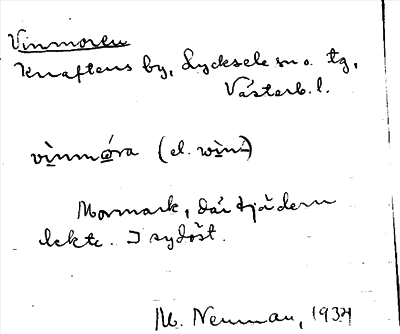 Vinmoren
Knaftens by, Lycksele sn o. tg,
Västerb. l.
vinmóra (el. win-)
Mormark, där tjädern
lekte. I sydöst.
M. Neuman, 1934